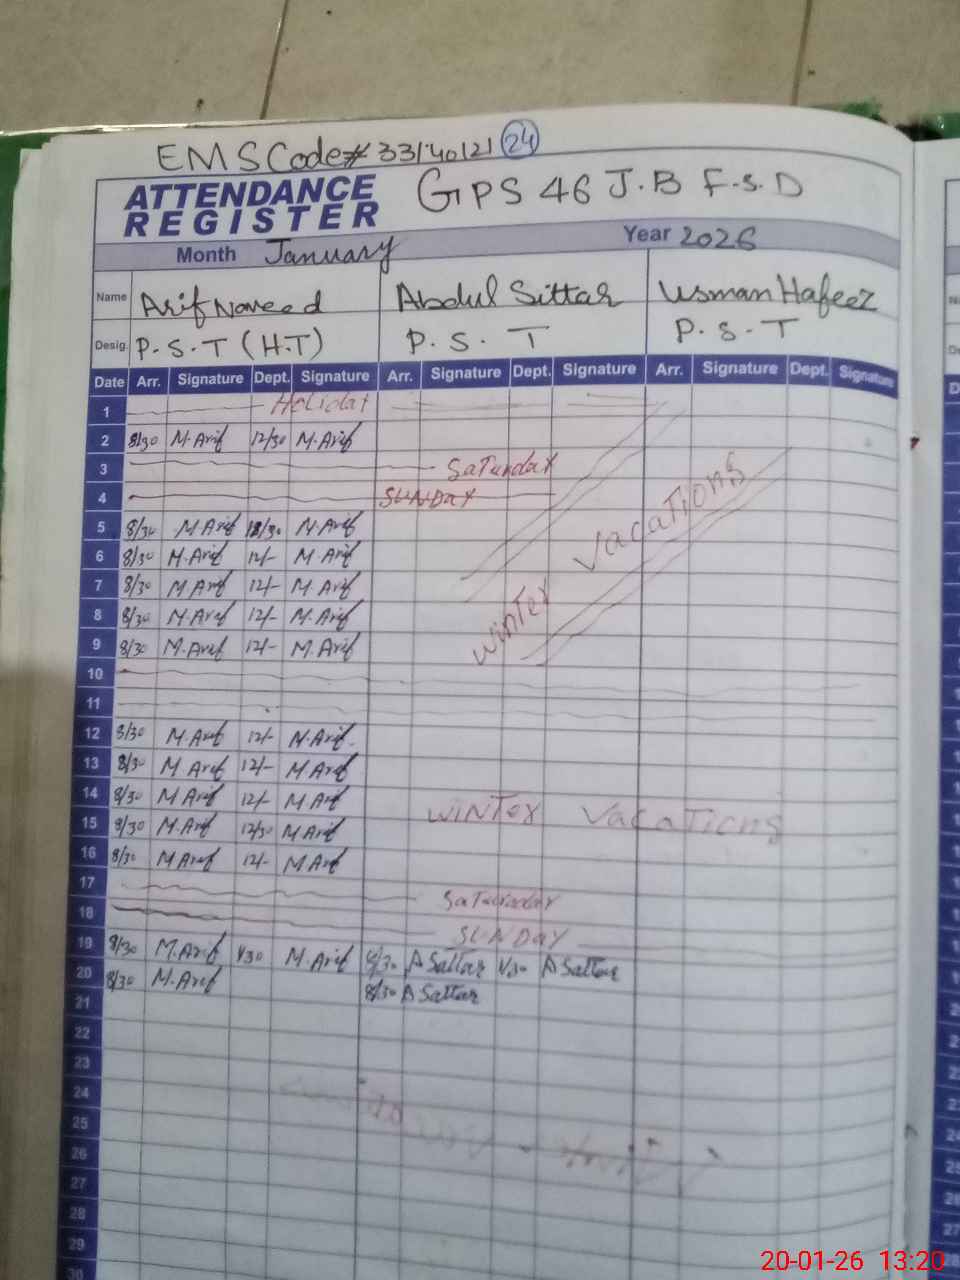 EMS Code# 33140121 24
ATTENDANCE REGISTER GPS 46 J.B F.S.D
Month January Year 2026
Name Arif Naveed Abdul Sittar Usman Hafeez
Desig. P.S.T (H.T) P.S.T P.S.T
Date Arr. Signature Dept. Signature Arr. Signature Dept. Signature Arr. Signature Dept. Signature
1 Holiday
2 8/30 M.Arif 12/30 M.Arif
3 Saturday
4 SUNDAY
5 8/30 M Arif 12/30 M.Arif
6 8/30 M.Arif 12/- M.Arif
7 8/30 M Arif 12/- M Arif
8 8/30 M.Arif 12/- M.Arif
9 8/30 M.Arif 12/- M.Arif
winter vacations
10
11
12 8/30 M.Arif 12/- M.Arif
13 8/30 M Arif 12/- M Arif
14 8/30 M Arif 12/- M Arif
15 8/30 M.Arif 12/30 M Arif
winter vacations
16 8/30 M Arif 12/- M Arif
17 Saturday
18 SUNDAY
19 8/30 M.Arif 1/30 M.Arif A Sattar 1/30 A Sattar
20 8/30 M.Arif 8/30 A Sattar
21
22
23
24
25
26
27
28
29
30
20-01-26 13:20